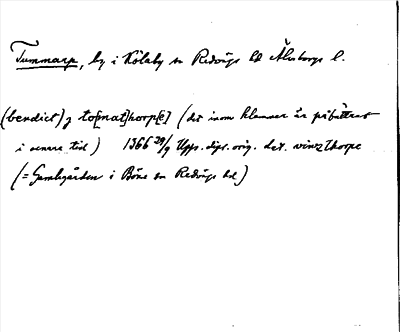 Tummarp, by i Kölaby sn Redvägs hd Älvsborgs l.
(bendict) j to[mat]horp[e] (det inom klammer är påbättrat
i senare tid) 1366 29/9 Upps. dipl. orig. det. vinzthorpe
(= Gamlegården i Böne sn Redvägs hd)